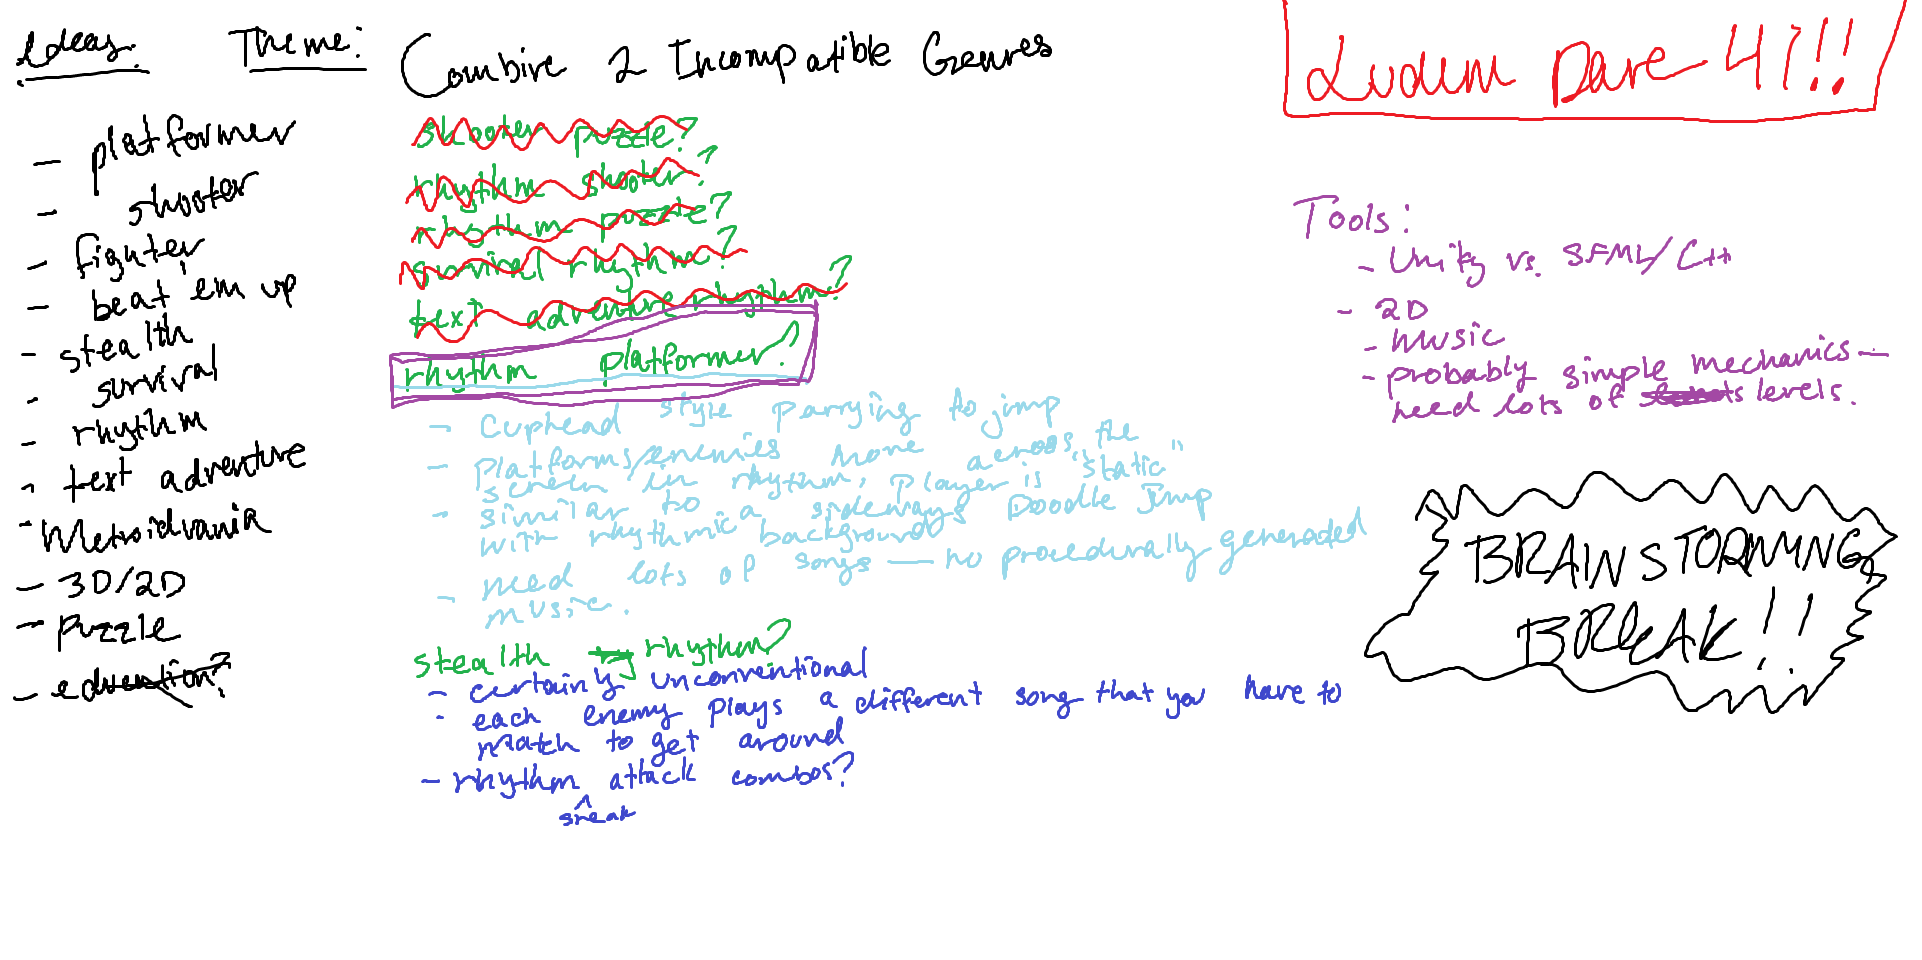 Ideas:
Theme: Combine 2 Incompatible Genres
Ludum Dare 41!!
- platformer
- shooter
- fighter
- beat 'em up
- stealth
- survival
- rhythm
- text adventure
- Metroidvania
- 3D/2D
- Puzzle
- education?
shooter puzzle?
rhythm shooter?
rhythm puzzle?
survival rhythm?
text adventure rhythm?
rhythm platformer?
- Cuphead style parrying to jump
- Platforms/enemies move across the
screen in rhythm, player is "static"
- similar to a sideways Doodle Jump
with rhythmic backgrounds
- need lots of songs — no procedurally generated
music.
stealth rhythm?
- certainly unconventional
- each enemy plays a different song that you have to
match to get around
- rhythm sneak attack combos?
Tools:
- Unity vs. SFML/C++
- 2D
- Music
- probably simple mechanics —
need lots of levels.
BRAINSTORMING
BREAK!!